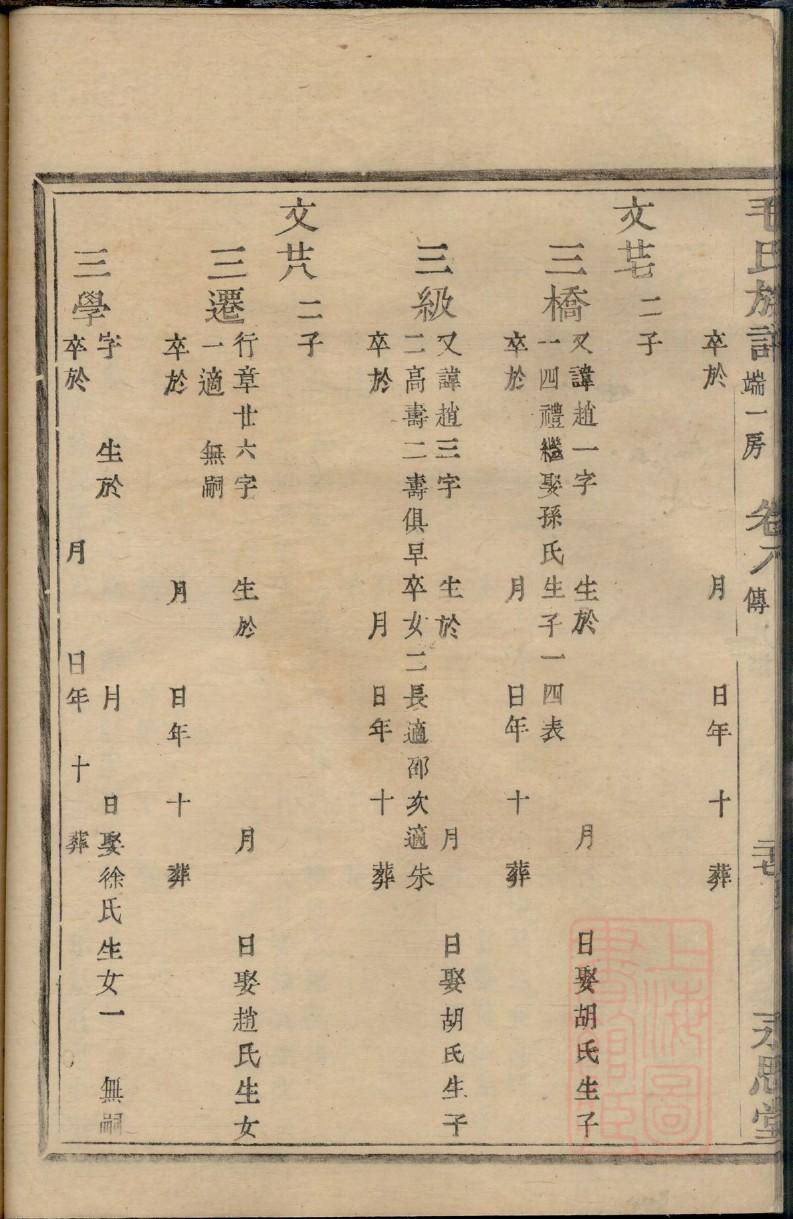 毛氏族譜 端一房 卷八 傳 永思堂
卒於 月 日年十 葬
文芚 二子
三橋 又諱趙一字 生於 月 日娶胡氏生子
一四禮繼娶孫氏生子一四表
卒於 月 日年十 葬
三級 又諱趙三字 生於 月 日娶胡氏生子
二高壽二壽俱早卒女二長適邵次適朱
卒於 月 日年十 葬
文芁 二子
三遷 行章廿六字 生於 月 日娶趙氏生女
一適 無嗣
卒於 月 日年十 葬
三學 字 生於 月 日娶徐氏生女一 無嗣
卒於 月 日年十 葬
上海圖書館臣